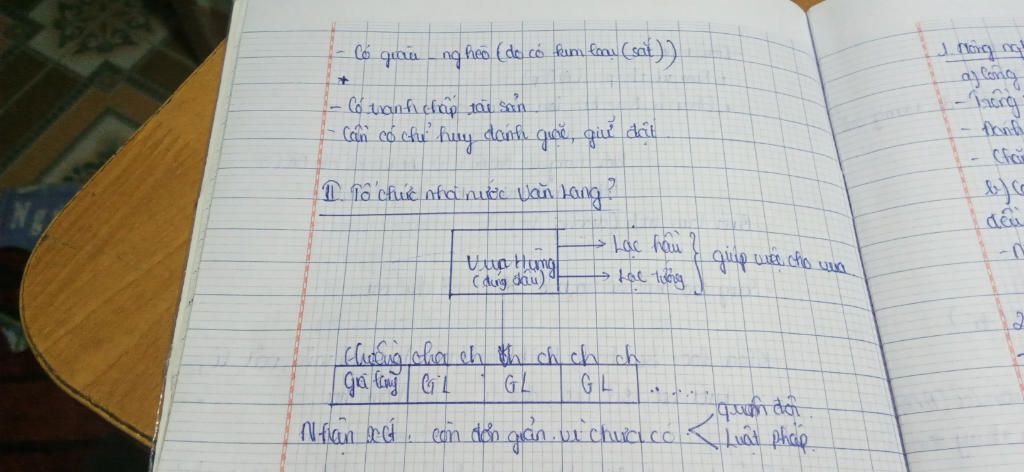 - Có giàu - nghèo (do có kim loại (sắt))
+
- Có tranh chấp tài sản
- Cần có chỉ huy đánh giặc, giữ đất
II Tổ chức nhà nước Văn Lang?
Vua Hùng
(đứng đầu)
Lạc hầu
Lạc tướng
giúp việc cho vua
chưởng cha ch ch ch ch ch
già làng GL GL GL ......
Nhận xét: còn đơn giản vì chưa có
quân đội.
Luật pháp
1. Nông ng
a) Công
- Trồng
- Đánh
- Chă
b) Cô
đều
2